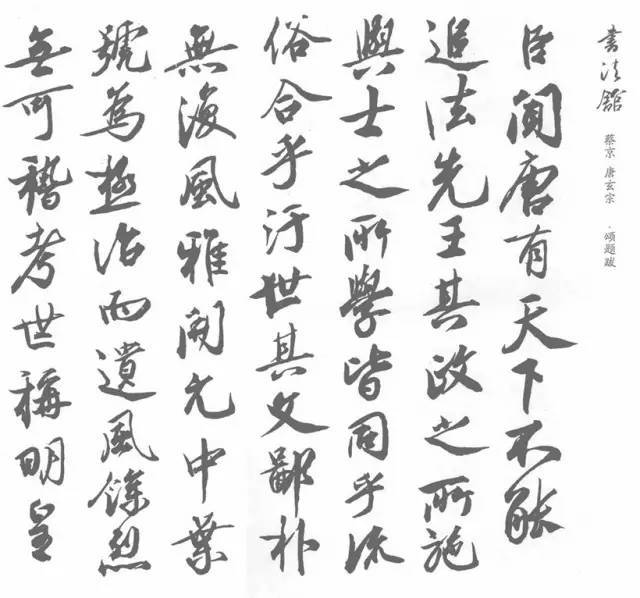 書法館
蔡京 唐玄宗 ·頌題跋
臣聞唐有天下不能
追法先王其政之所施
與士之所學皆同乎流
俗合乎汙世其文鄙朴
無復風雅開元中葉
號為極治而遺風餘烈
無可稽考世稱明皇